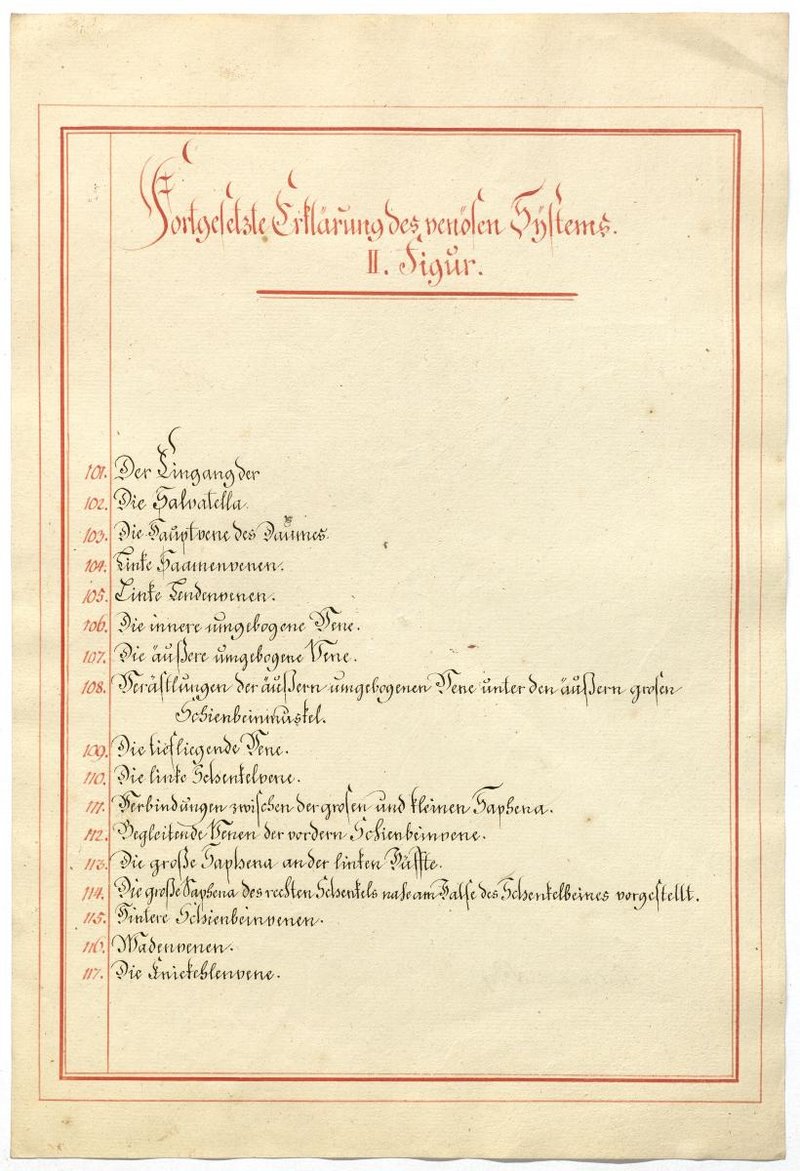 Fortgesetzte Erklärung des venösen Systems.
II. Figur.
101. Der Eingang der
102. Die Salvatella.
103. Die Hauptvene des Daumes.
104. Linke Saamenvenen.
105. Linke Lendenvenen.
106. Die innere umgebogene Vene.
107. Die äußere umgebogene Vene.
108. Verästlungen der äußern umgebogenen Vene unter den äußern grosen
Schienbeinmuskel.
109. Die tiefliegende Vene.
110. Die linke Schenkelvene.
111. Verbindungen zwischen der grosen und kleinen Saphena.
112. Begleitende Venen der vordern Schienbeinvene.
113. Die große Saphena an der linken Hüffte.
114. Die große Saphena des rechten Schenkels nahe am Halse des Schenkelbeines vorgestellt.
115. Hintere Schienbeinvenen.
116. Wadenvenen.
117. Die Kniekehlenvene.